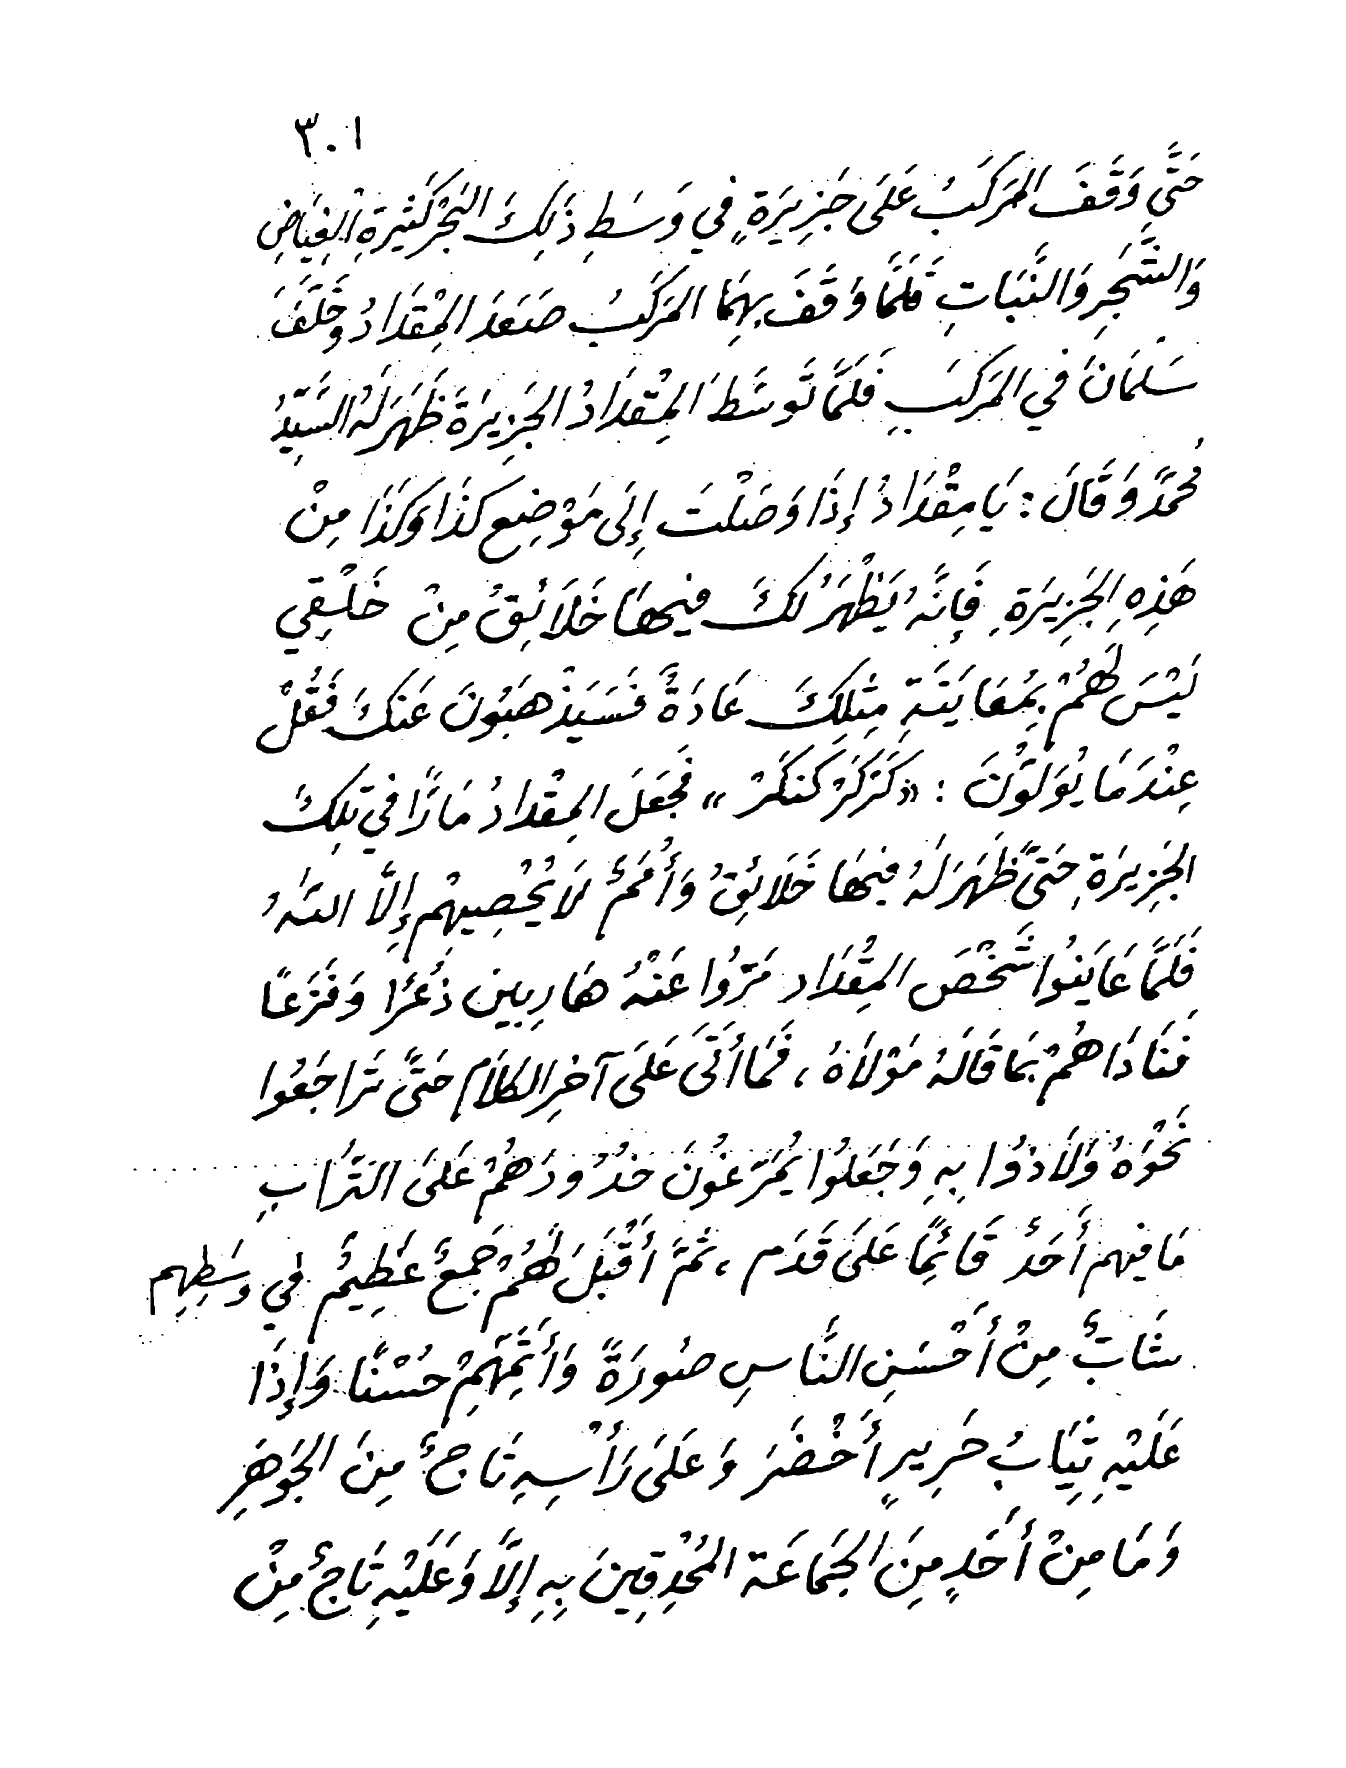 ٣٠١
حَتَّى وَقَفَ المَركَبُ عَلَى جَزِيرَةٍ في وَسَطِ ذَلِكَ البَحْرِ كَثِيرَةِ الْغِيَاضِ
وَالشَّجَرِ وَالنَّبَاتِ فَلَمَّا وَقَفَ بِهِمَا المَركَبُ صَعَدَ المِقْدَادُ وَخَلَّفَ
سَلمَانَ في المَركَبِ فَلَمَّا تَوسَّطَ المِقْدَادُ الجَزِيرَةَ ظَهَرَ لَهُ السَّيِّدُ
مُحَمَّدٌ وَقَالَ : يَا مِقْدَادُ إِذَا وَصَلْتَ إِلَى مَوْضِعِ كَذَا وَكَذَا مِنْ
هَذِهِ الجَزِيرَةِ فَإِنَّهُ يَظْهَرُ لَكَ فيهَا خَلَائِقُ مِنْ خَلْقِي
لَيْسَ لَهُمْ بِمُعَايَنَةِ مِثلِكَ عَادَةٌ فَسَيَذْهَبُونَ عَنكَ فَقُلْ
عِنْدَمَا يُوَلُّونَ : « كَرْكَرْ كَنكَرْ » فَجَعَلَ المِقْدَادُ مَارًّا في تِلكَ
الجَزِيرَةِ حَتَّى ظَهَرَ لَهُ فيهَا خَلَائِقُ وَأُمَمٌ لَا يُحْصِيهِمْ إِلَّا اللهُ
فَلَمَّا عَايَنوُا شَخْصَ المِقْدَادِ مَرُّوا عَنْهُ هَارِبِين ذُعْرًا وَفَزَعًا
فَنَادَاهُمْ بِمَا قَالَهُ مَوْلَاهُ ، فَمَا أَتَى عَلَى آخِرِ الكَلَامِ حَتَّى تَرَاجَعُوا
نَحْوَهُ وَلَاذوُا بِهِ وَجَعَلوُا يُمَرِّغُونَ خدُودَهُمْ عَلَى التُّرَابِ
مَا فيهم أَحَدٌ قَائِمًا عَلَى قَدَم ، ثمَّ أَقْبَلَ لَهُمْ جَمعٌ عَظِيمٌ في وَسَطِهِم
شَابٌّ مِنْ أَحْسَنِ النَّاسِ صُورَةً وَأَتَمِّهِمْ حُسْنًا وَإِذَا
عَلَيْهِ ثِيَابُ حَرِيرٍ أَخْضَرَ وَعَلَى رَأْسِهِ تَاجٌ مِنَ الجَوهَرِ
وَمَا مِنْ أَحَدٍ مِنَ الجَمَاعَة المُحْدِقِينَ بِهِ إِلَّا وَعَلَيْهِ تَاجٌ مِنْ